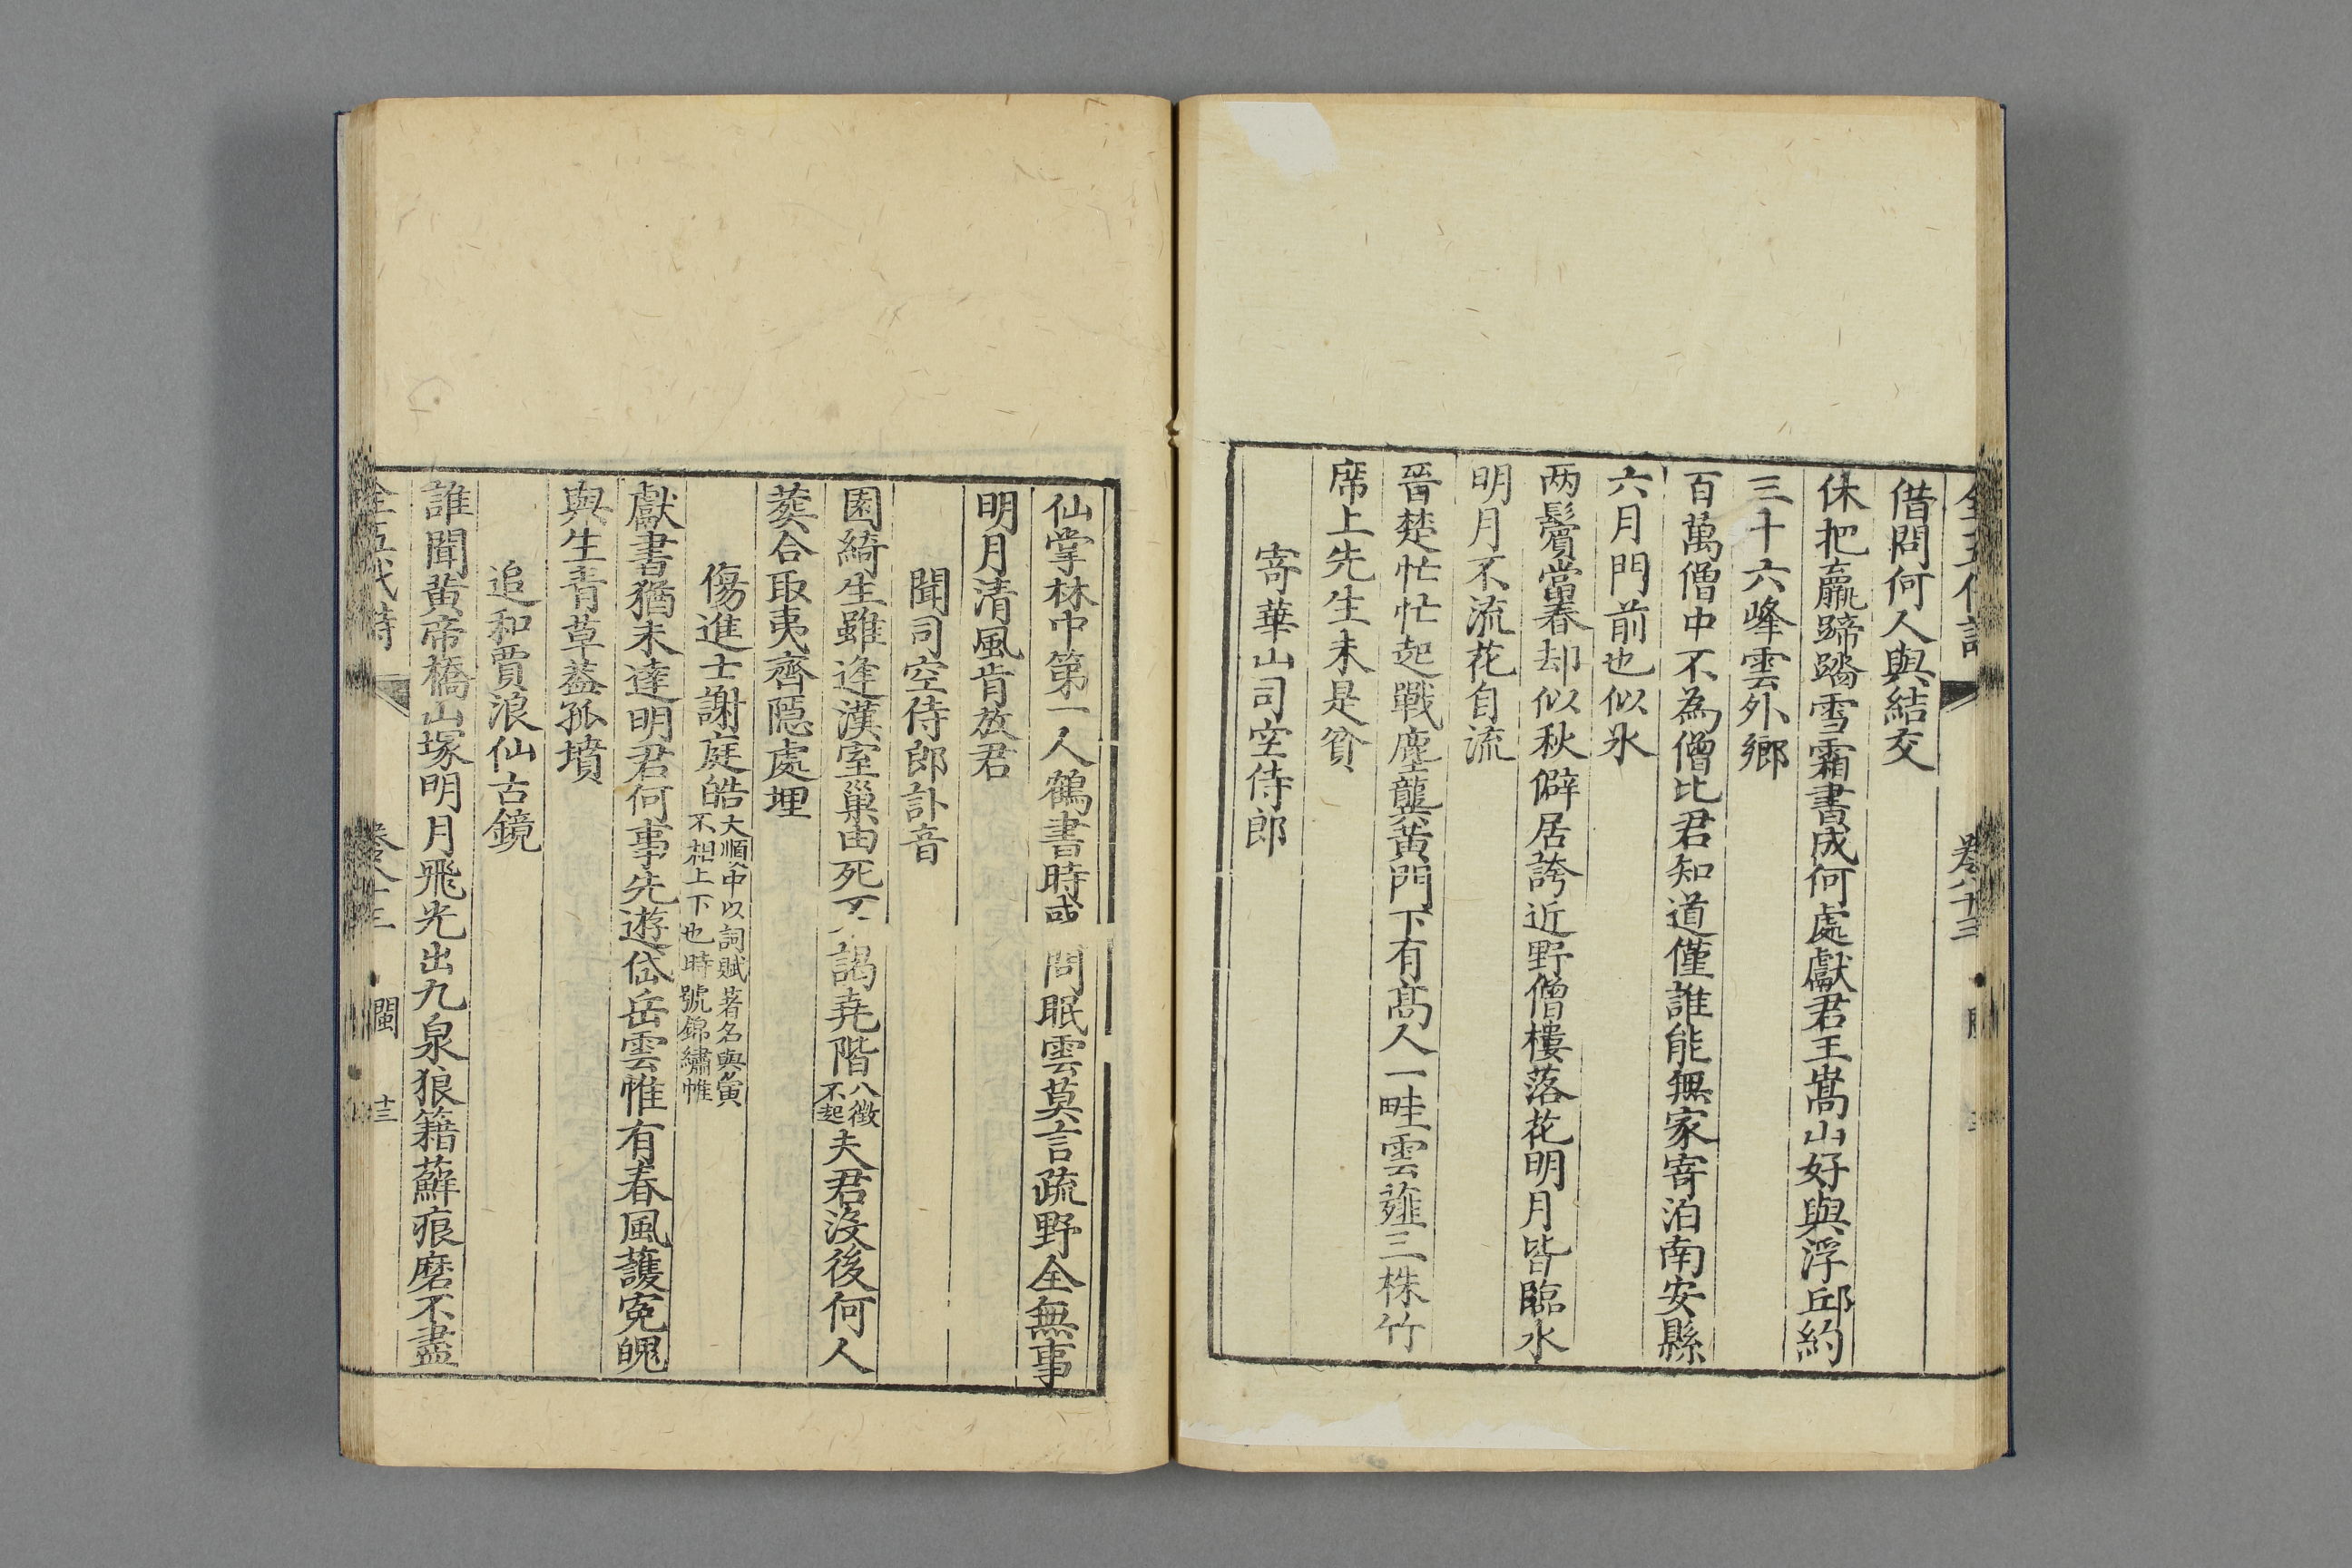 借問何人與結交
休把羸蹄踏雪霜書成何處獻君王嵩山好與浮邱約
三十六峰雲外鄉
百萬僧中不為僧比君知道僅誰能無家寄泊南安縣
六月門前也似氷
两鬢當春却似秋僻居誇近野僧樓落花明月皆臨水
明月不流花自流
晉楚忙忙起戰塵龔黃門下有髙人一畦雲薤三株竹
席上先生未是貧
寄華山司空侍郎
仙掌林中第一人鶴書時或問眠雲莫言疏野全無事
明月清風肯放君
聞司空侍郎訃音
園綺生雖逢漢室巢由死不謁堯階八徵不起夫君沒後何人
葬合取夷齊隱處埋
傷進士謝庭皓大順中以詞賦著名與寅不相上下也時號錦繡帷
獻書猶未達明君何事先遊岱岳雲惟有春風護寃魄
與生青草蓋孤墳
追和賈浪仙古鏡
誰聞黃帝橋山塚明月飛光出九泉狼籍蘚痕磨不盡
全五代詩 卷八十三 閩 十三